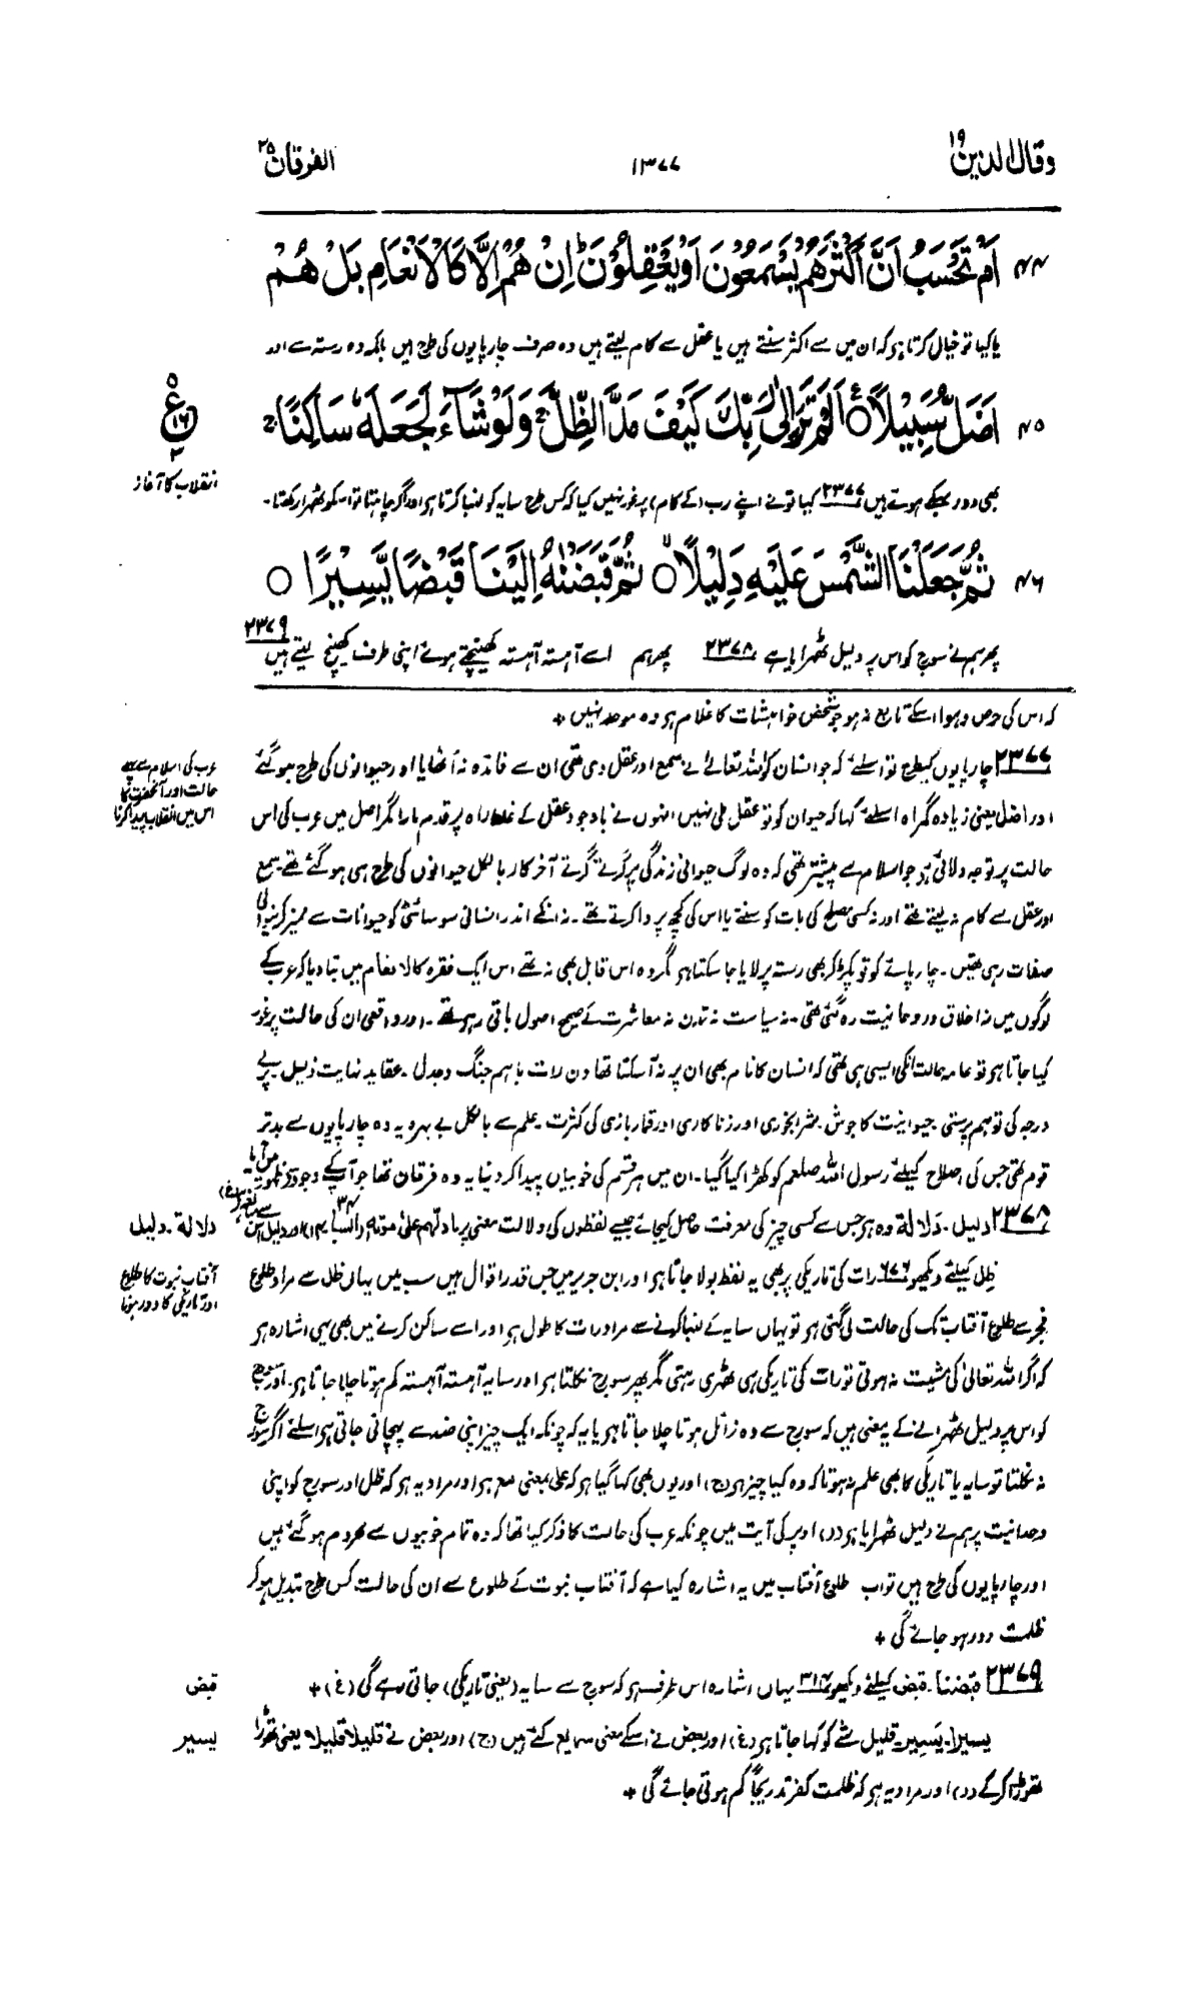 وقال الذین ۱۹
۱۳۷۷
الفرقان ۲۵
۴۴ اَمْ تَحْسَبُ اَنَّ اَكْثَرَهُمْ يَسْمَعُوْنَ اَوْ يَعْقِلُوْنَ ؕ اِنْ هُمْ اِلَّا كَالْاَنْعَامِ بَلْ هُمْ
یا کیا تو خیال کرتا ہو کہ ان میں سے اکثر سنتے ہیں یا عقل سے کام لیتے ہیں وہ صرف چارپایوں کی طرح ہیں بلکہ وہ رستہ سے اور
۴۵ اَضَلُّ سَبِيْلًا ○ اَلَمْ تَرَ اِلٰى رَبِّكَ كَيْفَ مَدَّ الظِّلَّ ۚ وَلَوْ شَآءَ لَجَعَلَهٗ سَاكِنًا ۚ
ع
۵
۱۶
۲
انقلاب کا آغاز
بھی دور بھٹکے ہوئے ہیں ۲۳۷۷ کیا تو نے اپنے رب (کے کام) پر غور نہیں کیا کہ کس طرح سایہ کو لنبا کرتا ہو اور اگر چاہتا تو اسکو ٹھہرا رکھتا۔
۴۶ ثُمَّ جَعَلْنَا الشَّمْسَ عَلَيْهِ دَلِيْلًا ○ ثُمَّ قَبَضْنٰهُ اِلَيْنَا قَبْضًا يَّسِيْرًا ○
پھر ہم نے سورج کو اس پر دلیل ٹھہرایا ہے ۲۳۷۸ پھر ہم اسے آہستہ آہستہ کھینچتے ہوئے اپنی طرف کھینچ لیتے ہیں ۲۳۷۹
کہ اس کی حرص و ہوا اسکے تابع نہ ہو جو شخص خواہشات کا غلام ہو وہ موحد نہیں +
عرب کی اسلام سے پہلے
حالت اور آنحضرت کا
اس میں انقلاب پیدا کرنا
۲۳۷۷ چارپایوں کیطرح تو اسلئے کہ جو انسان کو اللہ تعالیٰ نے سمع اور عقل دی تھی ان سے فائدہ نہ اُٹھایا اور حیوانوں کی طرح ہو گئے
اور اضل یعنی زیادہ گمراہ اسلئے کہا کہ حیوان کو تو عقل ملی نہیں انہوں نے باوجود عقل کے غلط راہ پر قدم مارا مگر اصل میں عرب کی اس
حالت پر توجہ دلائی ہو جو اسلام سے پیشتر تھی کہ وہ لوگ حیوانی زندگی پر گرتے گرتے آخر کار بالکل حیوانوں کی طرح ہی ہو گئے تھے سمع
اور عقل سے کام نہ لیتے تھے اور نہ کسی مصلح کی بات کو سنتے یا اس کی کچھ پروا کرتے تھے۔ نہ انکے اندر انسانی سوسائٹی کو حیوانات سے ممیز کرنیوالی
صفات رہی تھیں۔ چارپائے کو تو پکڑ کر بھی رستہ پر لایا جا سکتا ہو مگر وہ اس قابل بھی نہ تھے اس ایک فقرہ کالانعام میں بتا دیا کہ عرب کے
لوگوں میں نہ اخلاق و روحانیت رہ گئی تھی۔ نہ سیاست نہ تمدن نہ معاشرت کے صحیح اصول باقی رہے تھے۔ اور واقعی ان کی حالت پر غور
کیا جاتا ہو تو عامہ حالت انکی ایسی ہی تھی کہ انسان کا نام بھی ان پر نہ آ سکتا تھا دن رات باہم جنگ و جدل۔ عقاید نہایت ذلیل پرلے
درجہ کی توہم پرستی حیوانیت کا جوش شراب خوری اور زناکاری اور قمار بازی کی کثرت علم سے بالکل بے بہرہ یہ وہ چارپایوں سے بدتر
قوم تھی جس کی اصلاح کیلئے رسول اللہ صلعم کو کھڑا کیا گیا۔ ان میں ہر قسم کی خوبیاں پیدا کر دینا یہ وہ فرقان تھا جو آپکے وجود سے ظہور میں آیا۔
دلالۃ۔ دلیل
۲۳۷۸ دلیل۔ دَلالۃ وہ ہو جس سے کسی چیز کی معرفت حاصل کیجائے جیسے لفظوں کی دلالت معنی پر ما دلھم علی موتہ (السبا۔۳۴۔۱۴) اور دلیل اس سے
آفتاب نبوت کا طلوع
اور تاریکی کا دور ہونا
ظل کیلئے دیکھو ۶۷۶ رات کی تاریکی پر بھی یہ لفظ بولا جاتا ہو اور ابن جریر میں جس قدر اقوال ہیں سب میں یہاں ظل سے مراد طلوع
فجر سے طلوع آفتاب تک کی حالت لی گئی ہو تو یہاں سایہ کے لنبا کرنے سے مراد رات کا طول ہو اور اسے ساکن کرنے میں بھی یہی اشارہ ہو
کہ اگر اللہ تعالیٰ کی مشیت نہ ہوتی تو رات کی تاریکی ہی ٹھہری رہتی مگر پھر سورج نکلتا ہو اور سایہ آہستہ آہستہ کم ہوتا چلا جاتا ہو۔ اور سورج
کو اس پر دلیل ٹھہرانے کے یہ معنی ہیں کہ سورج سے وہ زائل ہوتا چلا جاتا ہو یا یہ کہ چونکہ ایک چیز اپنی ضد سے پہچانی جاتی ہو اسلئے اگر سورج
نہ نکلتا تو سایہ یا تاریکی کا بھی علم نہ ہوتا کہ وہ کیا چیز ہو (ج) اور یوں بھی کہا گیا ہو کہ علی بمعنی مع ہو اور مراد یہ ہو کہ ظل اور سورج کو اپنی
وحدانیت پر ہم نے دلیل ٹھہرایا ہو (ر) اوپر کی آیت میں چونکہ عرب کی حالت کا ذکر کیا تھا کہ وہ تمام خوبیوں سے محروم ہو گئے ہیں
اور چارپایوں کی طرح ہیں تو اب طلوع آفتاب میں یہ اشارہ کیا ہے کہ آفتاب نبوت کے طلوع سے ان کی حالت کس طرح تبدیل ہو کر
ظلمت دور ہو جائے گی +
قبض
۲۳۷۹ قبضنا۔ قبض کیلئے دیکھو ۳۱۴ یہاں اشارہ اس طرف ہو کہ سورج سے سایہ (یعنی تاریکی) جاتی رہے گی (غ) +
یسیر
یسیرا۔ یَسِیر۔ قلیل شے کو کہا جاتا ہو (غ) اور بعض نے اسکے معنی سریع کئے ہیں (ج) اور بعض نے قلیلا قلیلا یعنی تھوڑا
تھوڑا کر کے (ر) اور مراد یہ ہو کہ ظلمت کفر تدریجاً کم ہوتی جائے گی +